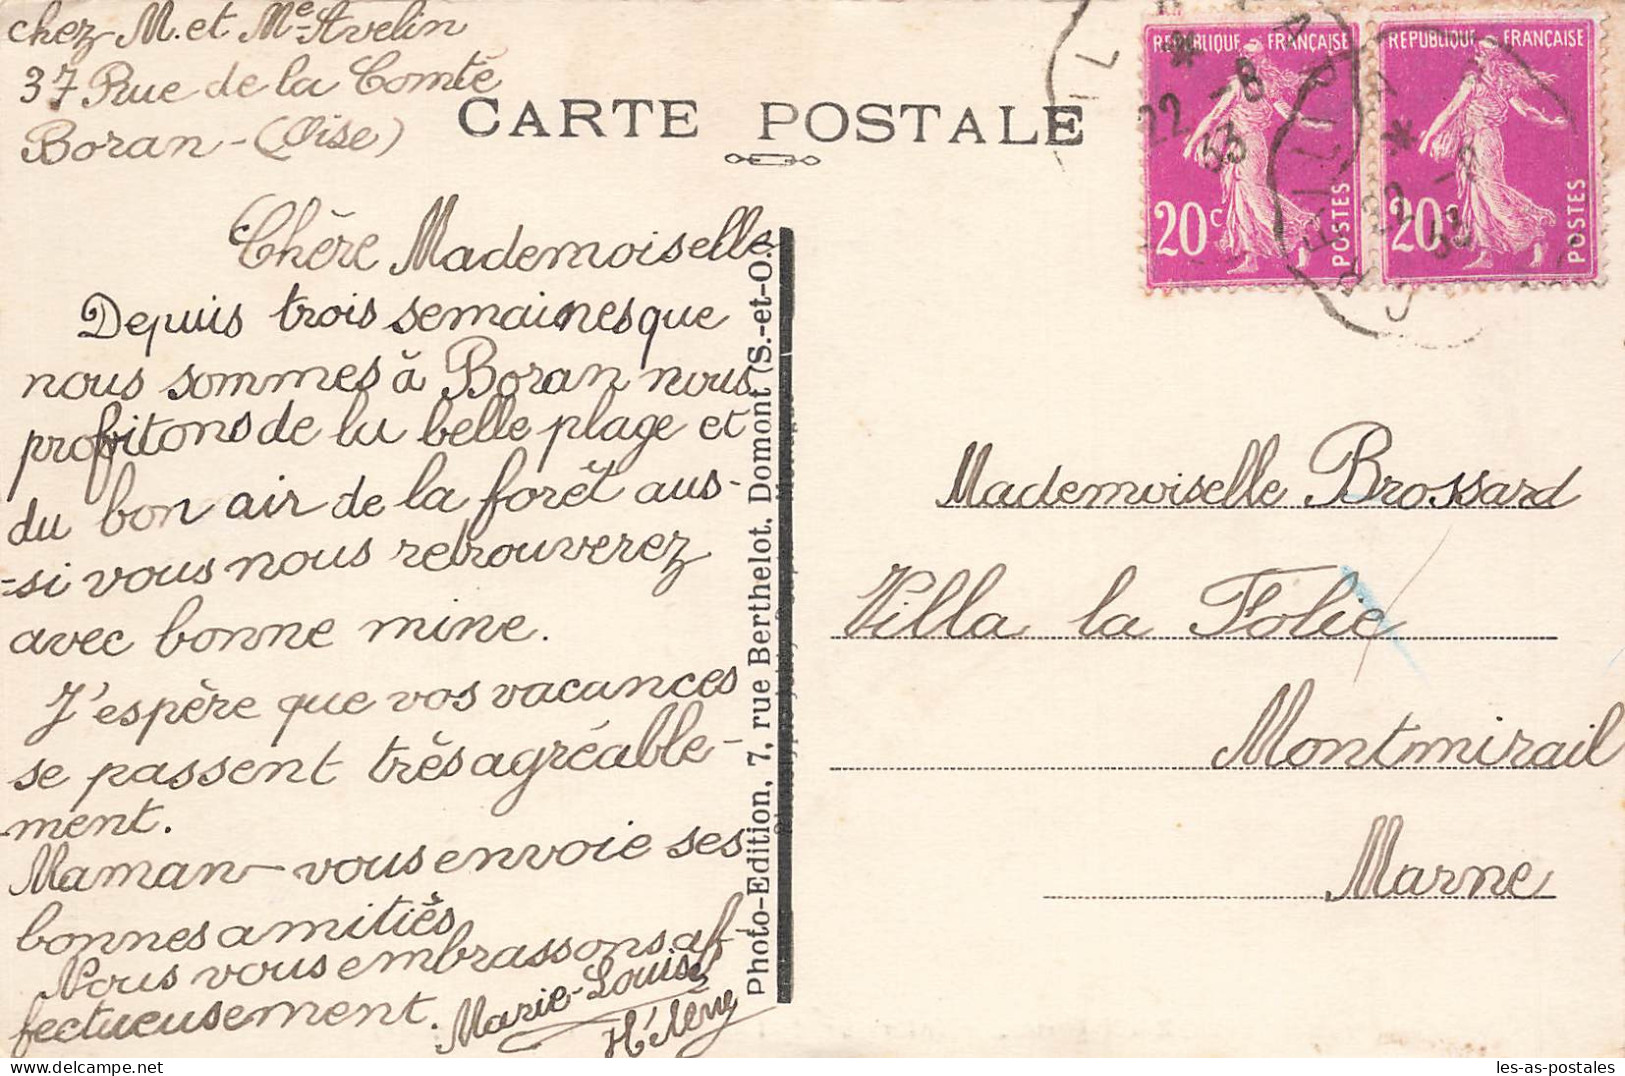 chez M. et Me Avelin
37 Rue de la Comté
Boran - (Oise)
CARTE POSTALE
REPUBLIQUE FRANÇAISE
20c
POSTES
REPUBLIQUE FRANÇAISE
20c
POSTES
22 -8
33
Chère Mademoiselle
Depuis trois semaines que
nous sommes à Boran nous
profitons de la belle plage et
du bon air de la forêt aus-
-si vous nous retrouverez
avec bonne mine.
J'espère que vos vacances
se passent très agréable-
-ment.
Maman vous envoie ses
bonnes amitiés
Nous vous embrassons af-
fectueusement. Marie-Louise
Photo-Edition, 7, rue Berthelot, Domont (S.-et-O.)
Mademoiselle Brossard
Villa la Folie
Montmirail
Marne
les-as-postales